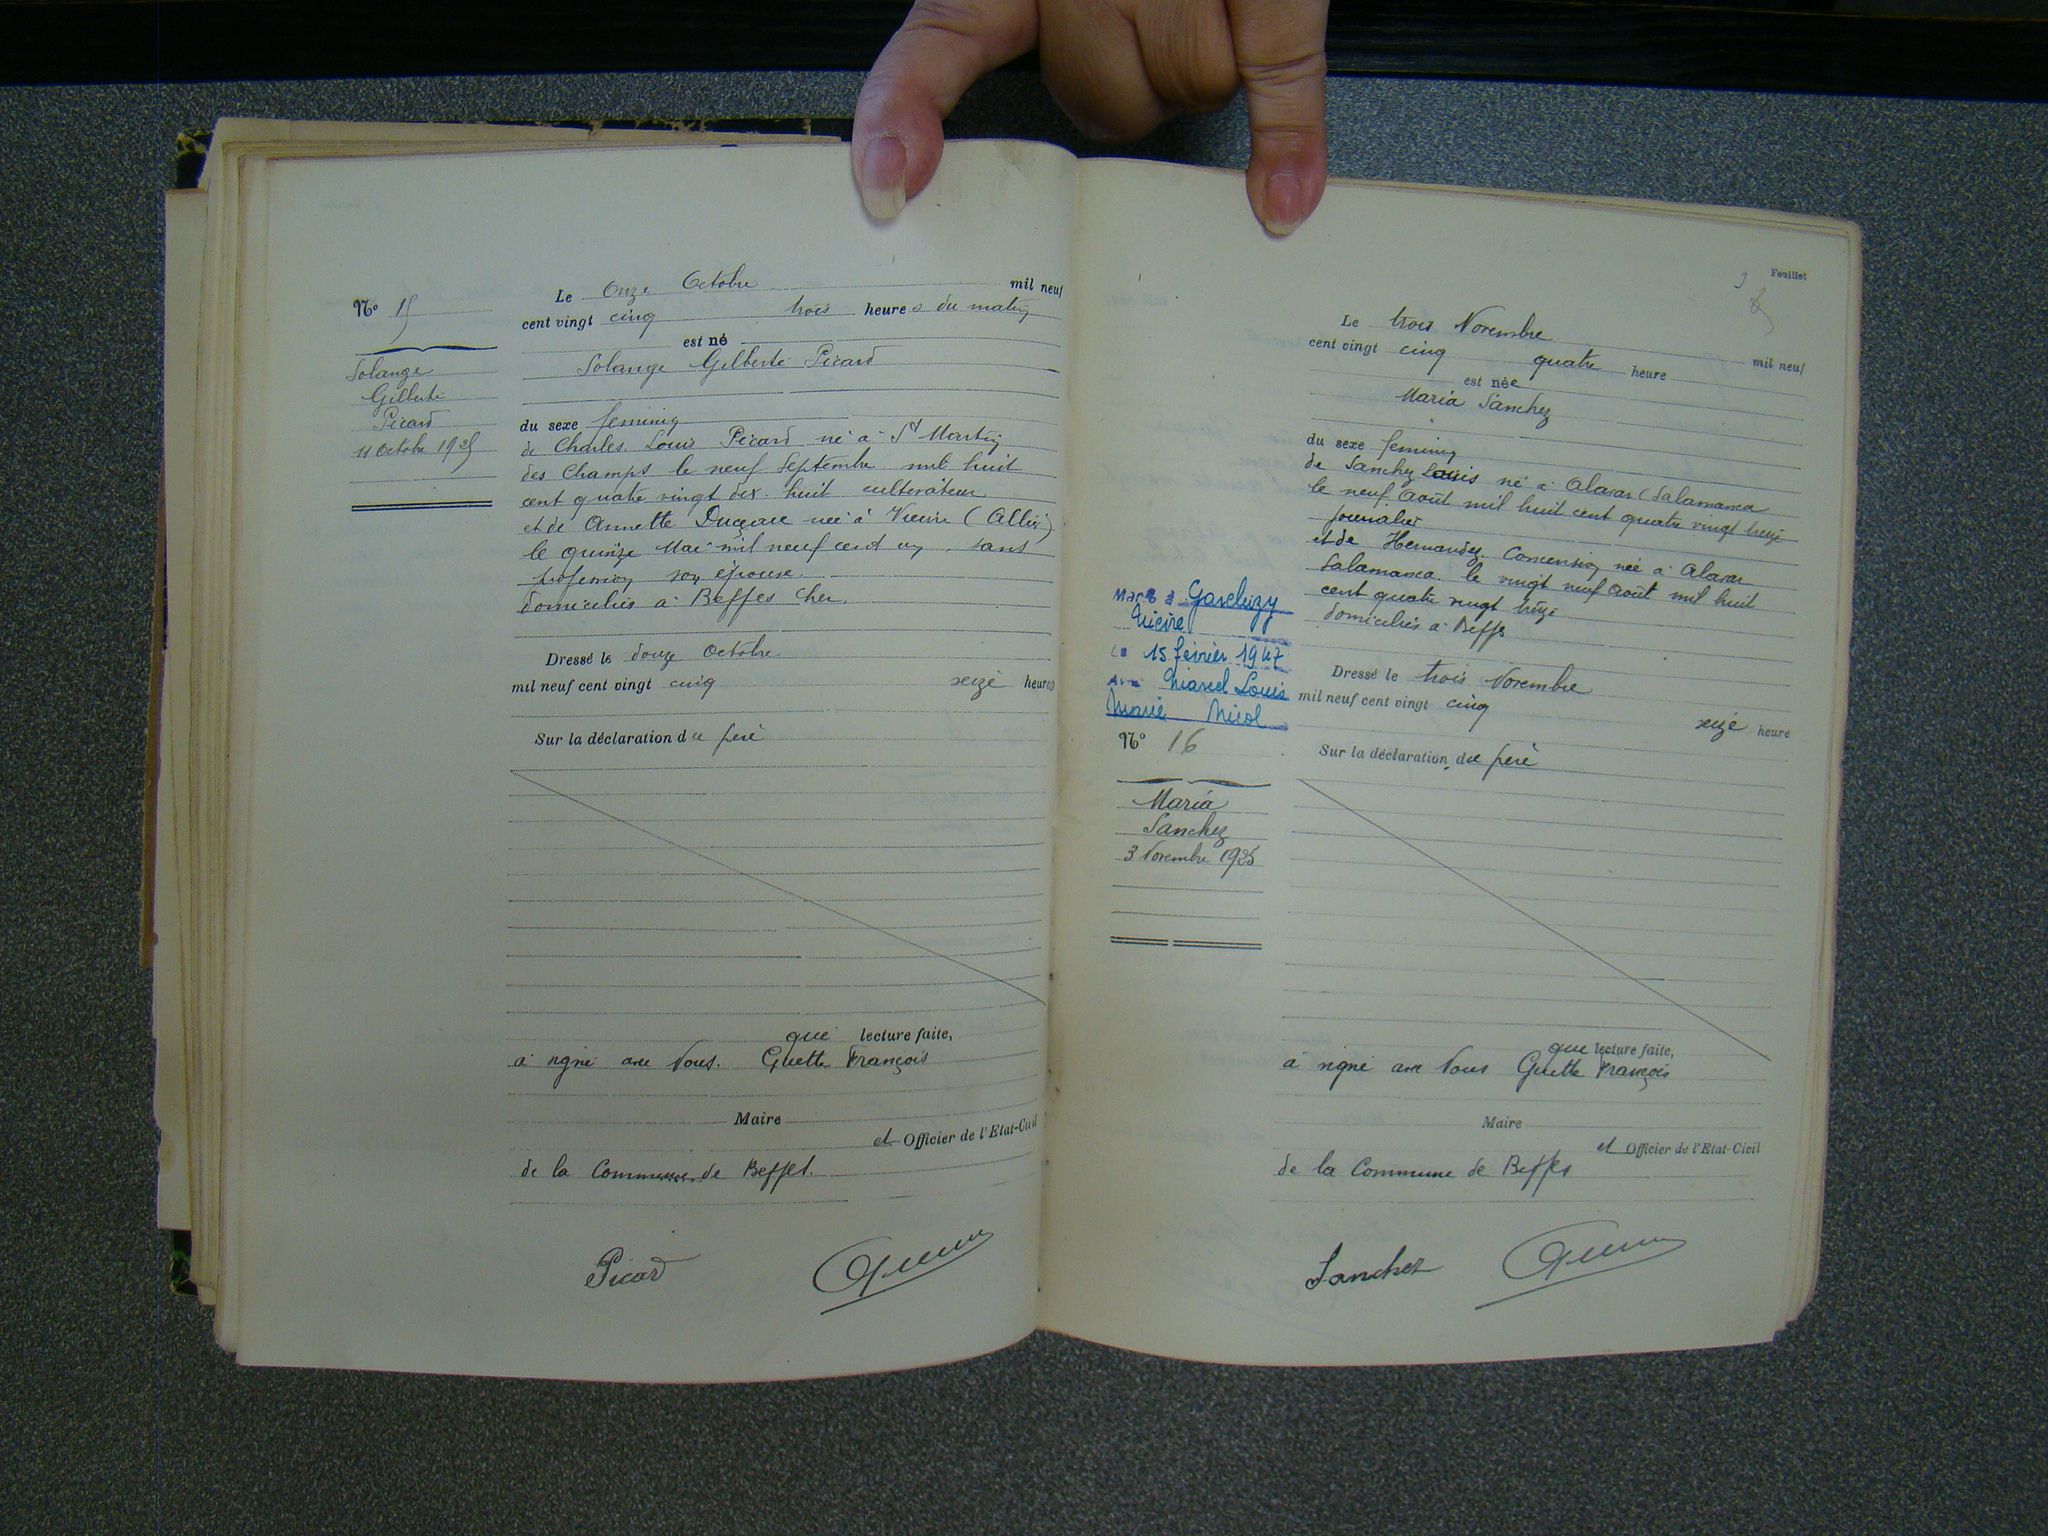 Nº 15
Solange
Gilberte
Picard
11 Octobre 1925
Le Onze Octobre mil neuf
cent vingt cinq trois heures du matin
est né
Solange Gilberte Picard
du sexe feminin
de Charles Louis Picard né à St Martin
des Champs le neuf Septembre mil huit
cent quatre vingt dix huit cultivateur
et de Annette née à (Allier)
le quinze Mai mil neuf cent un, sans
profession son épouse
domiciliés à Beffes Cher.
Dressé le douze Octobre
mil neuf cent vingt cinq seize heures
Sur la déclaration du père
que lecture faite,
a signé avec Nous. Guette François
Maire
et Officier de l'Etat-Civil
de la Commune de Beffes.
Picard
Feuillet
Le trois Novembre mil neuf
cent vingt cinq quatre heure
est née
Maria Sanchez
du sexe feminin
de Sanchez Louis né à (Salamanca
le neuf Août mil huit cent quatre vingt treize
journalier
et de Hernandez née à
Salamanca. le vingt neuf Août mil huit
cent quatre vingt treize
domiciliés à Beffes
Dressé le trois Novembre
mil neuf cent vingt cinq
seize heure
Sur la déclaration du père
Marié à
Nièvre
le 15 février 1947
avec Marcel Louis
Marie Nicol
Nº 16
Maria
Sanchez
3 Novembre 1925
que lecture faite,
a signé avec Nous Guette François
Maire
et Officier de l'Etat-Civil
de la Commune de Beffes
Sanchez